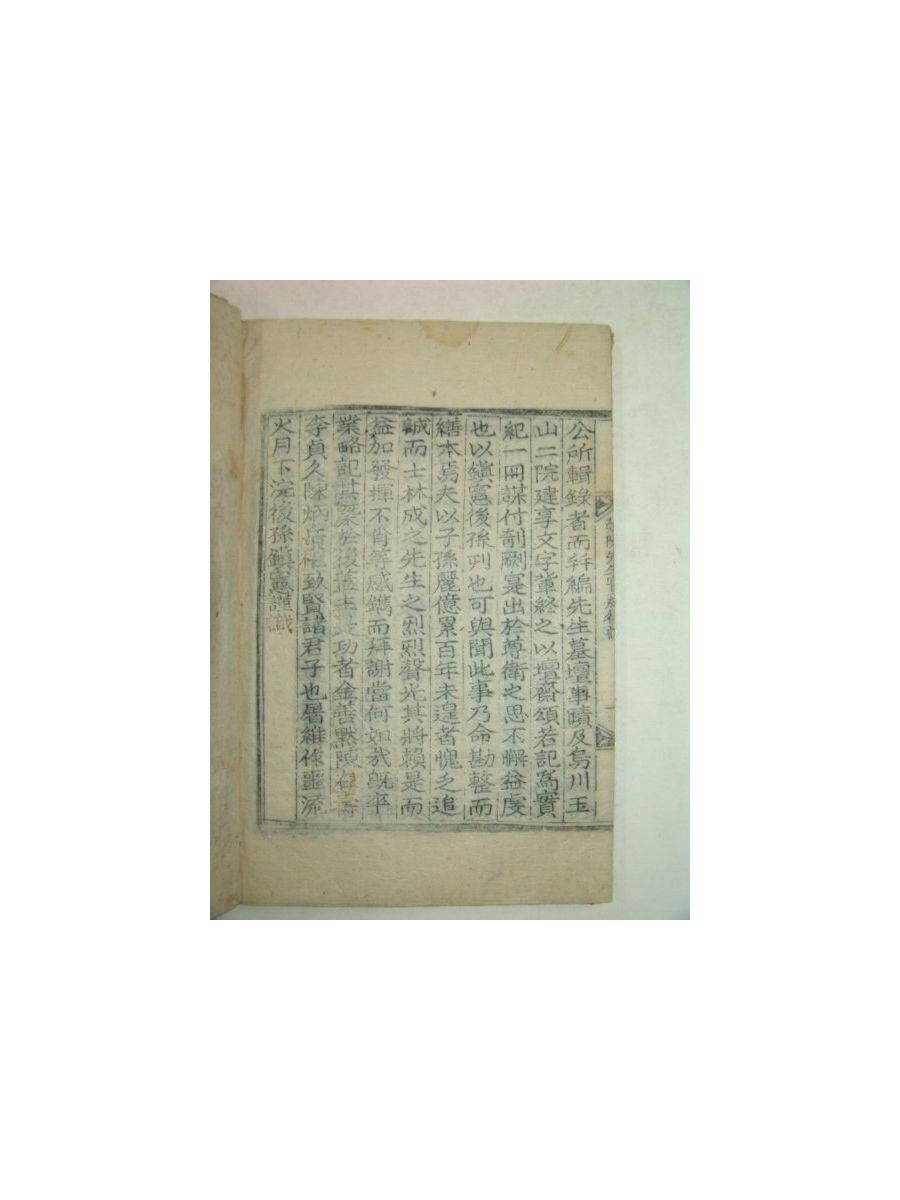 公所輯錄者而幷編先生墓壇事蹟及烏川玉
山二院建享文字輩終之以壇齋頌若記爲實
紀一冊謀付剞劂寔出於尊衛之思不懈益虔
也以鎭憲後孫列也可與聞此事乃命勘整而
繕本焉夫以子孫麗億累百年未遑者愧乏追
誠而士林成之先生之烈烈聲光其將賴是而
益加發揮不肖等感鐫而拜謝當何如哉旣卒
業略記其槩於後蓋主 功者金善默陳 壽
李貞久陳炳 權致賢諸君子也屠維作噩流
火月下浣後孫鎭憲謹識